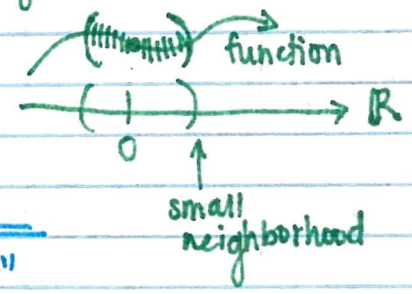 function
ℝ
0
small
neighborhood
"